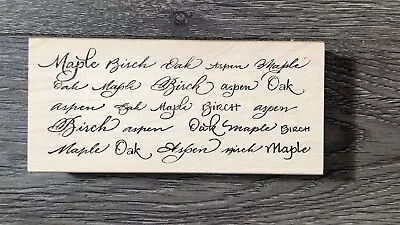 Maple Birch Oak Aspen Maple
Oak Maple Birch aspen Oak
aspen Oak Maple BIRCH aspen
Birch aspen Oak Maple BIRCH
Maple Oak Aspen Birch Maple